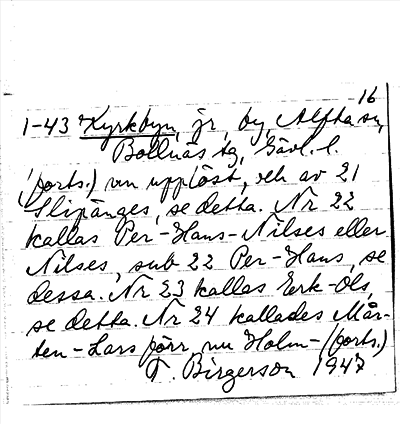 16
1-43 Kyrkbyn, jr, by, Alfta sn,
Bollnäs tg, Gävl. l.
(forts.) nu upplöst, del av 21
Slipänges, se detta. Nr 22
kallas Per-Hans-Nilses eller
Nilses, sub 22 Per-Hans, se
dessa. Nr 23 kallas Erk-Ols,
se detta. Nr 24 kallades Mår-
ten-Lars förr, nu Holm- (forts.)
F. Birgerson 1947